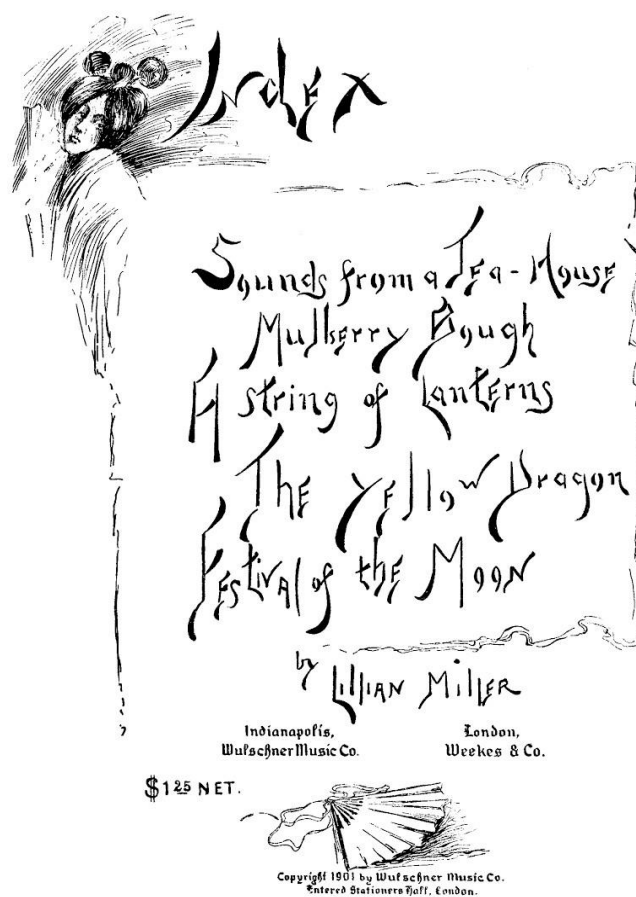 Index
Sounds from a Tea-House
Mulberry Bough
A string of Lanterns
The Yellow Dragon
Festival of the Moon
by Lillian Miller
Indianapolis,
Wulschner Music Co.
London,
Weekes & Co.
$1.25 NET.
Copyright 1901 by Wulschner Music Co.
Entered Stationers Hall, London.